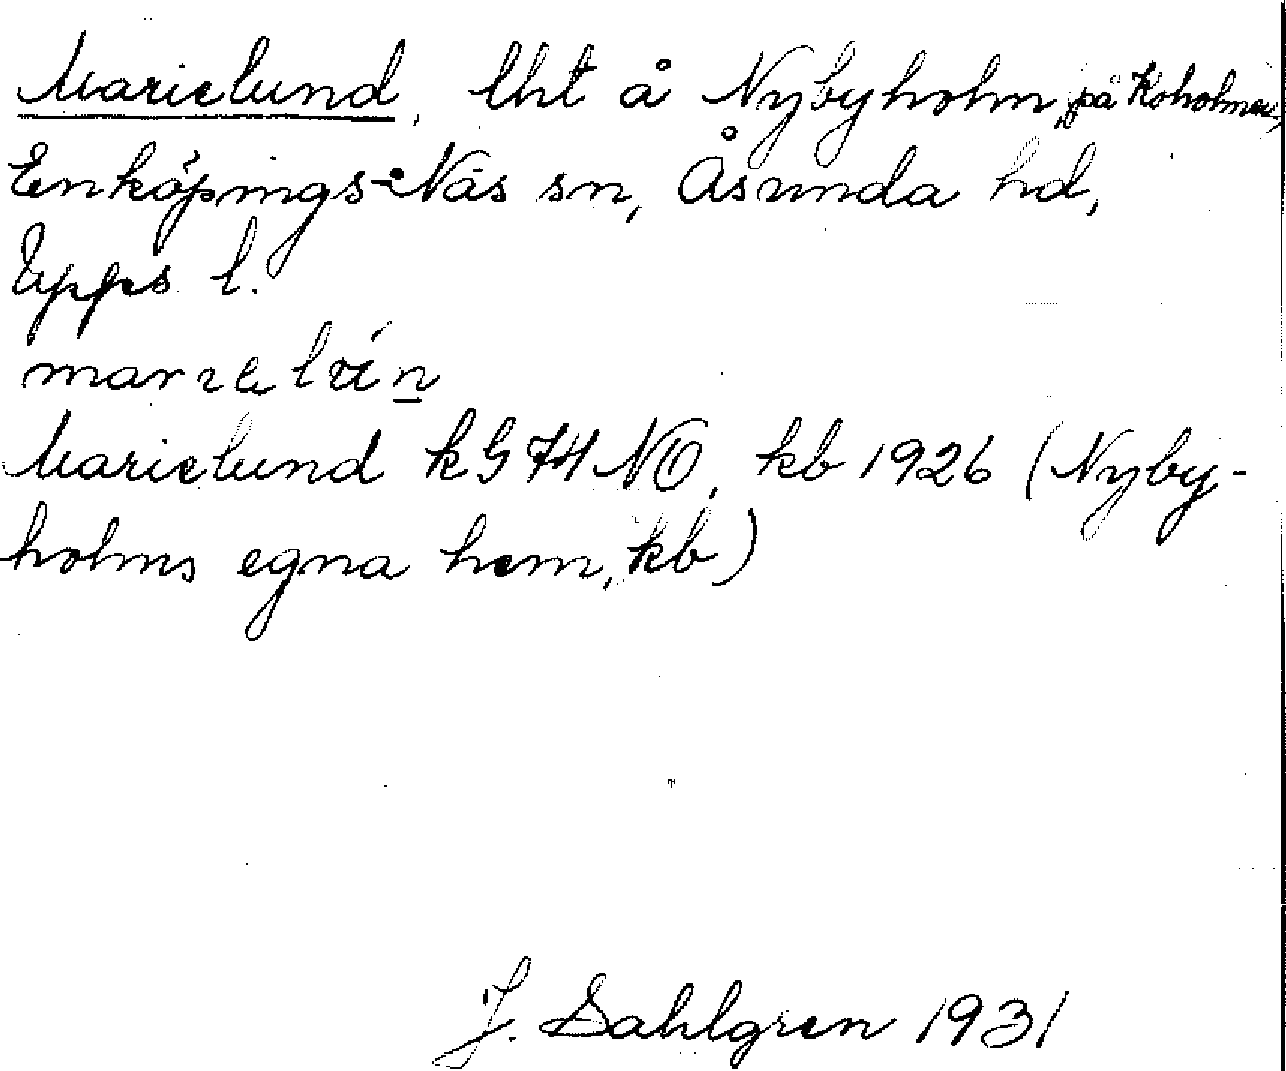 Marielund, lht å Nybyholm, på Koholmen,
Enköpings-Näs sn, Åsunda hd,
Upps l.
Marielund kG 74 NO, kb 1926 (Nyby-
holms egna hem, kb)
J. Sahlgren 1931